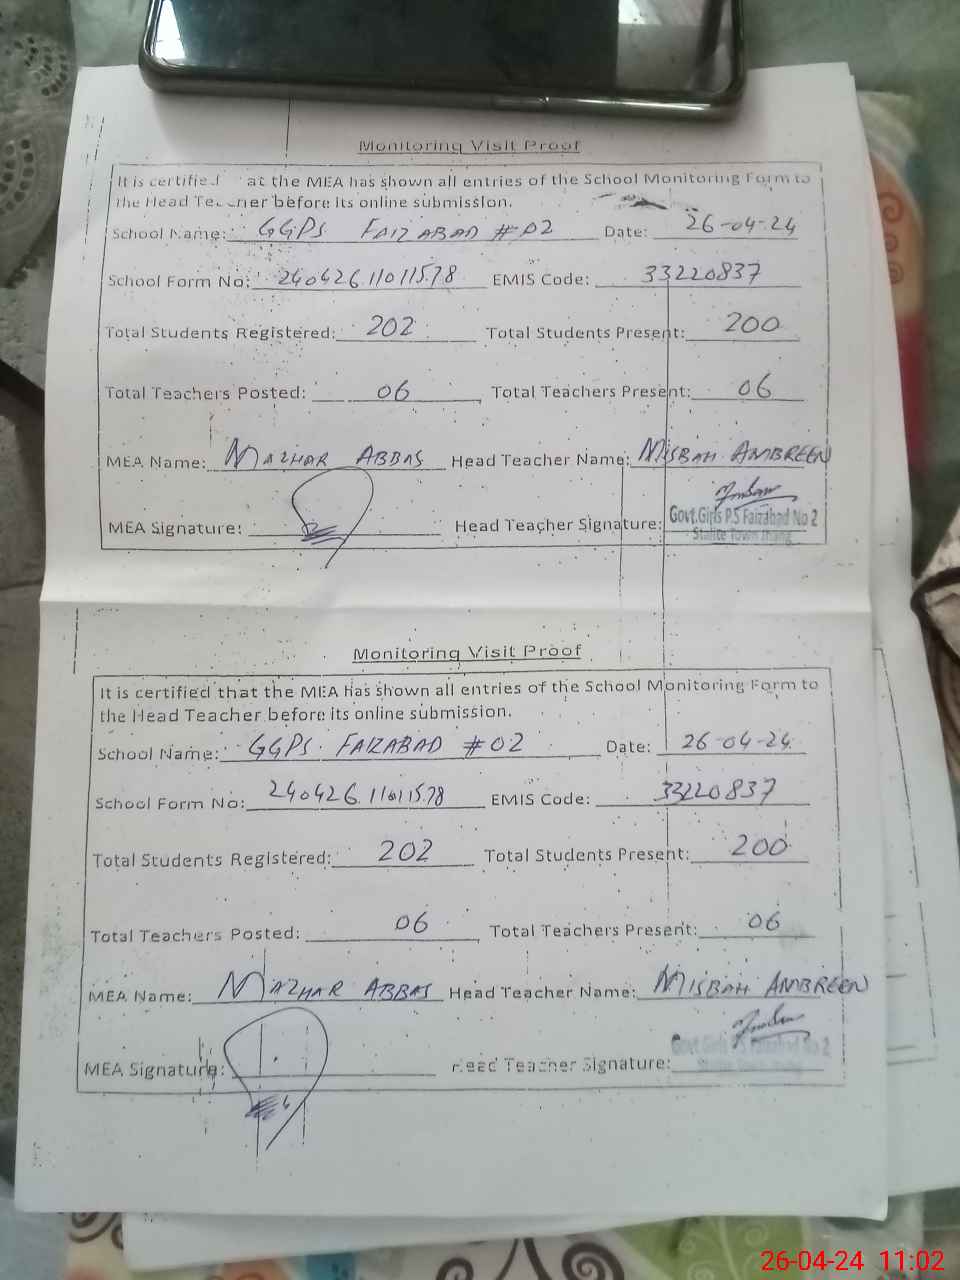 Monitoring Visit Proof
It is certified at the MEA has shown all entries of the School Monitoring Form to
the Head Teacher before its online submission.
School Name: GGPS FAIZABAD #02 Date: 26-04-24
School Form No: 240426.11011578 EMIS Code: 33220837
Total Students Registered: 202 Total Students Present: 200
Total Teachers Posted: 06 Total Teachers Present: 06
MEA Name: MAZHAR ABBAS Head Teacher Name: MISBAH AMBREEN
MEA Signature: Head Teacher Signature: Govt.Girls P.S Faizabad No 2
Stalite Town Jhang
Monitoring Visit Proof
It is certified that the MEA has shown all entries of the School Monitoring Form to
the Head Teacher before its online submission.
School Name: GGPS FAIZABAD #02 Date: 26-04-24
School Form No: 240426.11011578 EMIS Code: 33220837
Total Students Registered: 202 Total Students Present: 200
Total Teachers Posted: 06 Total Teachers Present: 06
MEA Name: MAZHAR ABBAS Head Teacher Name: MISBAH AMBREEN
MEA Signature: Head Teacher Signature: Govt Girls P.S Faizabad No 2
26-04-24 11:02